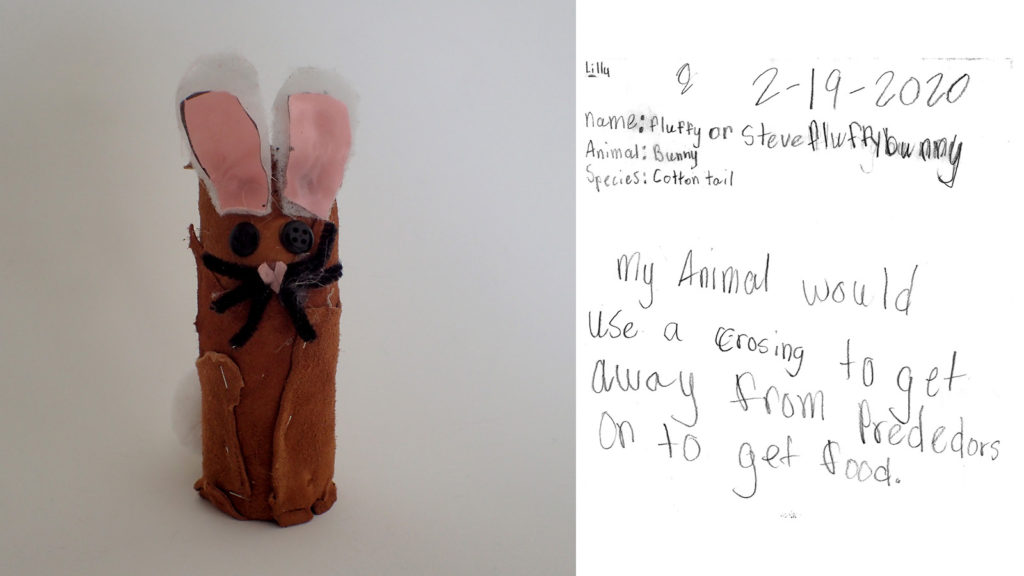 Lilly 2 2-19-2020
name: Fluffy or Steve fluffy bunny
Animal: Bunny
Species: Cotton tail
My Animal would
use a Crosing to get
away from Prededors
On to get food.